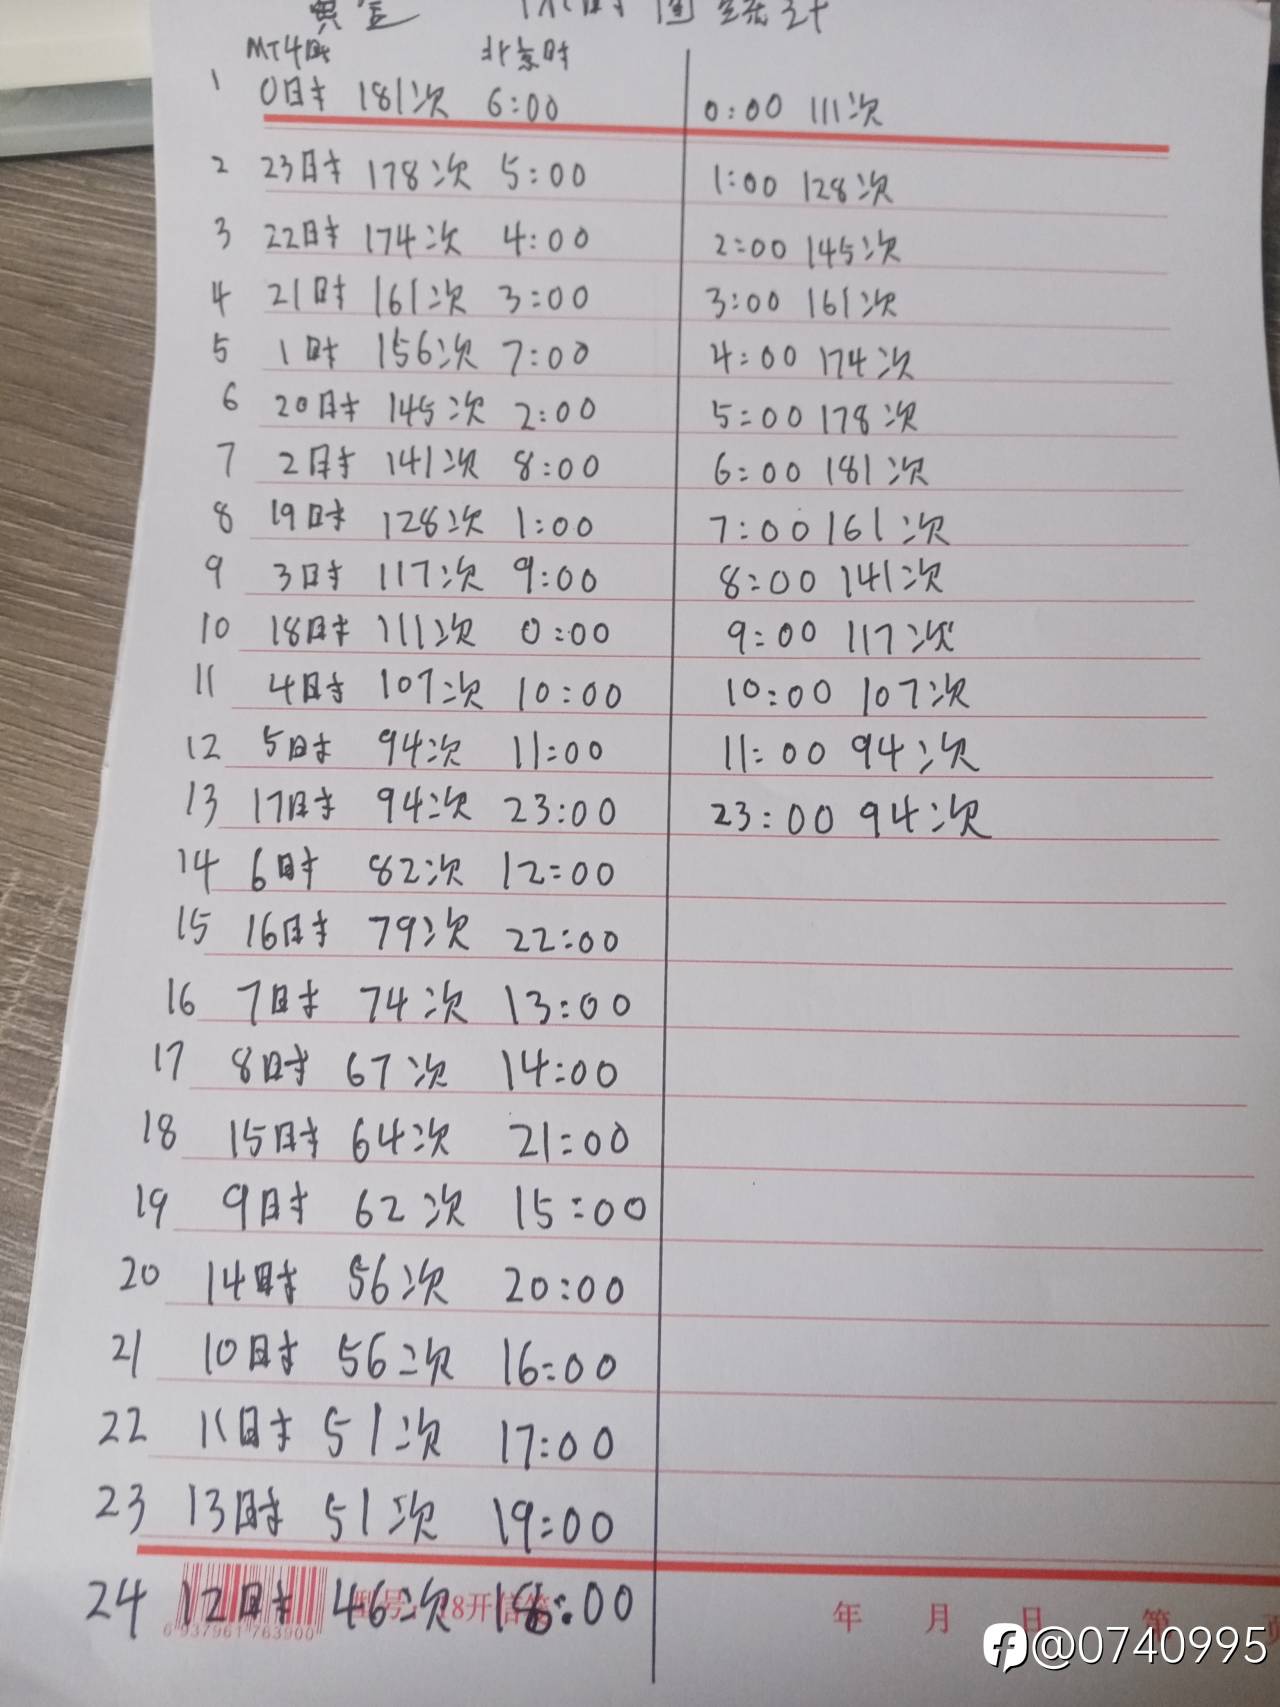 黄金 时间统计
MT4时 北京时
1 0时 181次 6:00 0:00 111次
2 23时 178次 5:00 1:00 128次
3 22时 174次 4:00 2:00 145次
4 21时 161次 3:00 3:00 161次
5 1时 156次 7:00 4:00 174次
6 20时 145次 2:00 5:00 178次
7 2时 141次 8:00 6:00 181次
8 19时 128次 1:00 7:00 161次
9 3时 117次 9:00 8:00 141次
10 18时 111次 0:00 9:00 117次
11 4时 107次 10:00 10:00 107次
12 5时 94次 11:00 11:00 94次
13 17时 94次 23:00 23:00 94次
14 6时 82次 12:00
15 16时 79次 22:00
16 7时 74次 13:00
17 8时 67次 14:00
18 15时 64次 21:00
19 9时 62次 15:00
20 14时 56次 20:00
21 10时 56次 16:00
22 11时 51次 17:00
23 13时 51次 19:00
24 12时 46次 18:00
型号: 18开信笺
6 937961 763900
年 月 日 第 页
@0740995